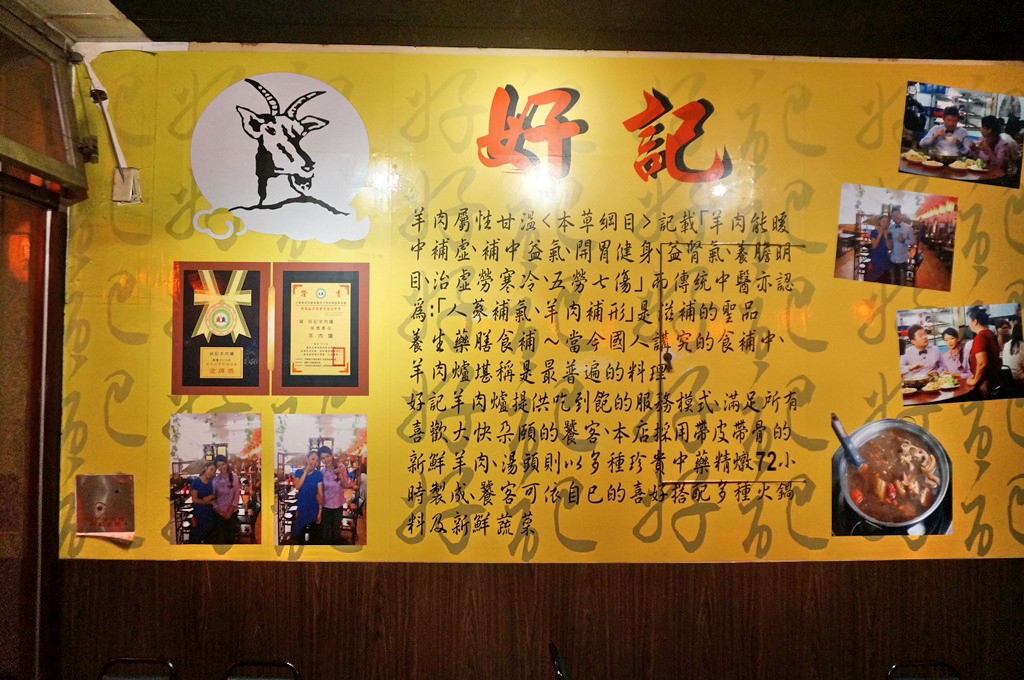 好記
羊肉屬性甘溫<本草綱目>記載「羊肉能暖
中補虛、補中益氣、開胃健身、益腎氣、養膽明
目、治虛勞寒冷、五勞七傷」而傳統中醫亦認
為:「人蔘補氣、羊肉補形」是滋補的聖品
養生藥膳食補~當今國人講究的食補中、
羊肉爐堪稱是最普遍的料理
好記羊肉爐提供吃到飽的服務模式、滿足所有
喜歡大快朵頤的饕客、本店採用帶皮帶骨的
新鮮羊肉、湯頭則以多種珍貴中藥精燉72小
時製成、饕客可依自已的喜好搭配多種火鍋
料及新鮮蔬菜
金牌獎
羊肉爐